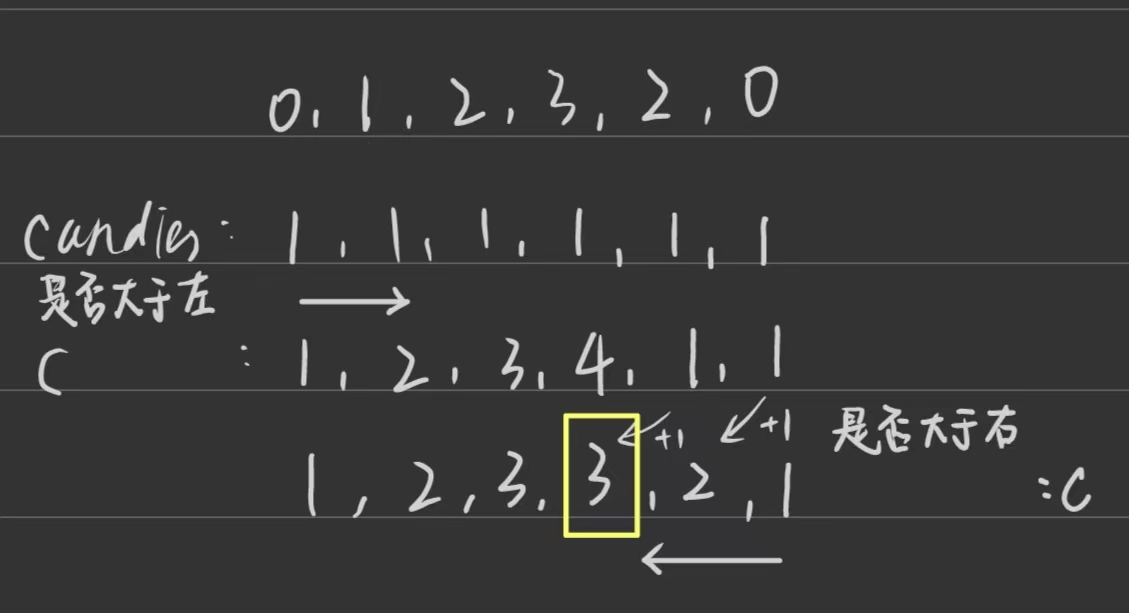 0, 1, 2, 3, 2, 0
candies: 1, 1, 1, 1, 1, 1
是否大于左
C : 1, 2, 3, 4, 1, 1
+1 +1 是否大于右
1, 2, 3, 3, 2, 1 :C